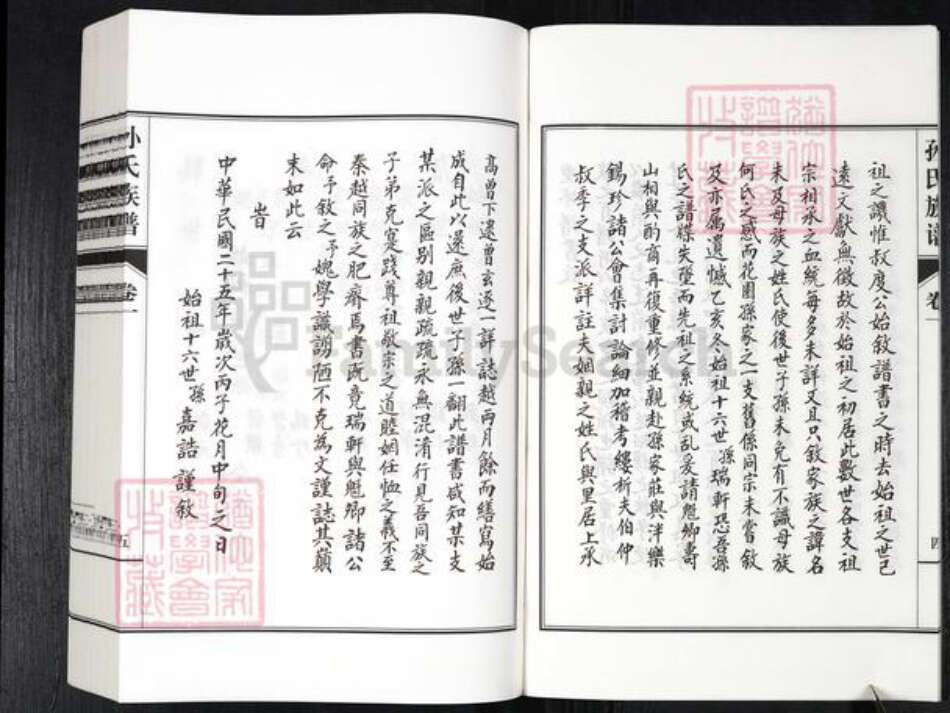 孙氏族谱
卷一
四
祖之讚惟叔度公始敘譜書之時去始祖之世已
遠文獻無徵故於始祖之初居此數世各支祖
宗相承之血統每多未詳又且只敘家族之諱名
未及母族之姓氏使後世子孫未免有不識母族
何氏之感而花園孫家之一支舊係同宗未嘗敘
及亦属遺憾乙亥冬始祖十六世孫瑞軒恐吾孫
氏之譜牒失墜而先祖之系統或乱爰請魁卿壽
山相與酌商再復重修並親赴孫家莊與泮樂
錫珍諸公會集討論細加稽考縷析夫伯仲
叔季之支派詳註夫姻親之姓氏與里居上承
高曽下逮曽玄逐一詳誌越两月餘而繕寫始
成自此以還庶後世子孫一翻此譜書咸知某支
某派之區别親親疏疏永無混淆行見吾同族之
子弟克寔踐尊祖敬宗之道睦婣任恤之義不至
秦越同族之肥瘠焉書既竟瑞軒與魁卿諸公
命予敘之予媿學識謭陋不克為文謹誌其巔
末如此云
旹
中華民國二十五年歲次丙子花月中旬之日
始祖十六世孫嘉誥謹敘
孙氏族譜
卷一
五
FamilySearch